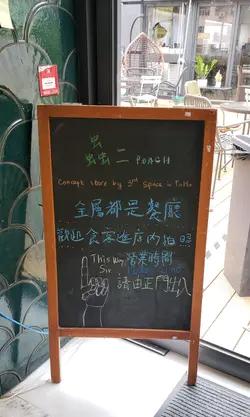 虫
虫虫二 POACH
Concept store by 3rd Space in TaiHa
全層都是餐廳
歡迎食客進店內拍照
This Way 營業時間
Sir
請由正門出入